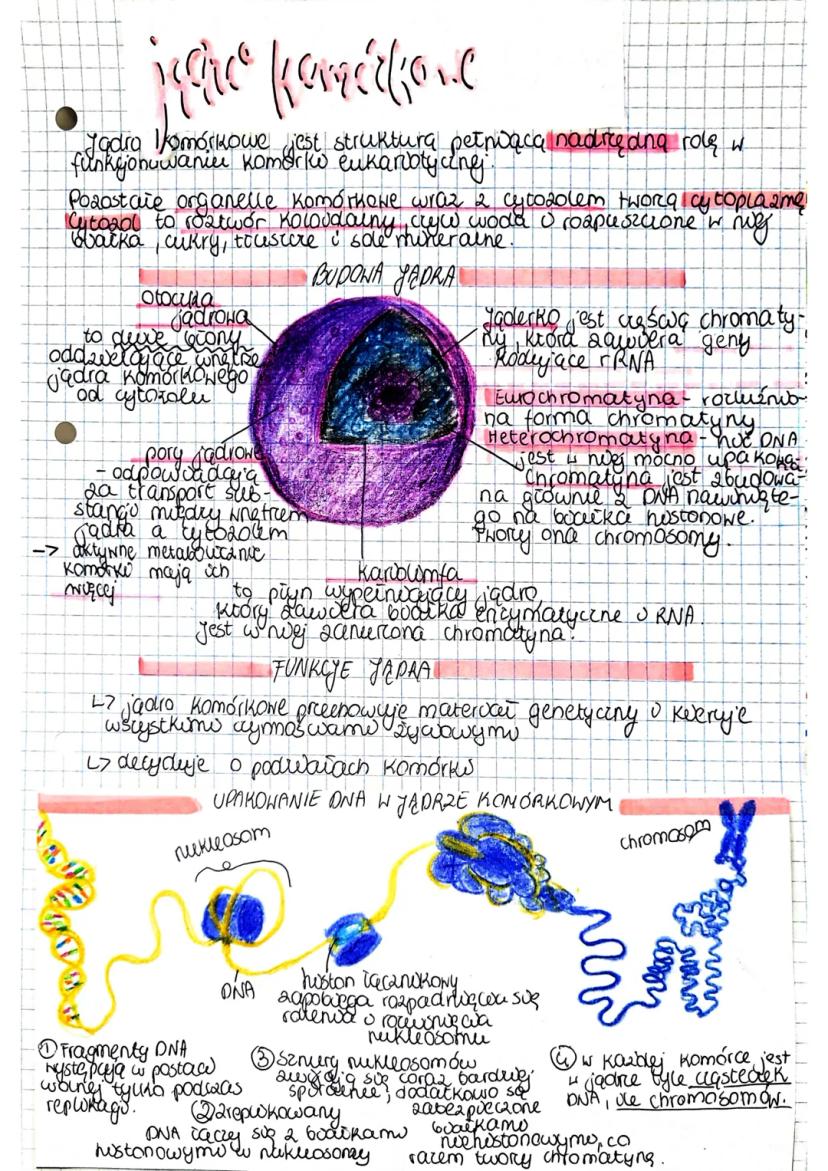 jądro komórkowe
Jądro komórkowe jest strukturą pełniącą nadrzędną rolę w
funkcjonowaniu komórki eukariotycznej.
Pozostałe organelle komórkowe wraz z cytozolem tworzą cytoplazmę
Cytozol to roztwór koloidalny, czyli woda i rozpuszczone w niej
białka, cukry, tłuszcze i sole mineralne.
BUDOWA JĄDRA
Otoczka
jądrowa
to dwie błony
oddzielające wnętrze
jądra komórkowego
od cytozolu
pory jądrowe
- odpowiadają
za transport sub-
stancji między wnętrzem
jądra a cytozolem
-> aktywne metabolicznie
komórki mają ich
więcej
Jąderko jest częścią chromaty-
ny, która zawiera geny
kodujące rRNA
Euchromatyna - rozluźnio-
na forma chromatyny
Heterochromatyna - nić DNA
jest w niej mocno upakowa-
na.
Chromatyna jest zbudowa-
na głównie z DNA nawinięte-
go na białka histonowe.
Tworzy ona chromosomy.
Kariolimfa
to płyn wypełniający jądro,
który zawiera białka enzymatyczne i RNA.
Jest w niej zanurzona chromatyna.
FUNKCJE JĄDRA
↳ jądro komórkowe przechowuje materiał genetyczny i kieruje
wszystkimi czynnościami życiowymi
↳ decyduje o podziałach komórki
UPAKOWANIE DNA W JĄDRZE KOMÓRKOWYM
nukleosom
chromosom
DNA
histon łącznikowy
zapobiega rozpadnięciu się
rdzenia i rozwinięcia
nukleosomu
① Fragmenty DNA
występują w postaci
wolnej tylko podczas
replikacji.
② zreplikowany
DNA łączy się z białkami
histonowymi w nukleosomy
③ Sznury nukleosomów
zwijają się coraz bardziej
spiralnie; dodatkowo są
zabezpieczone
białkami
niehistonowymi, co
razem tworzy chromatynę.
④ w każdej komórce jest
w jądrze tyle cząsteczek
DNA, ile chromosomów.